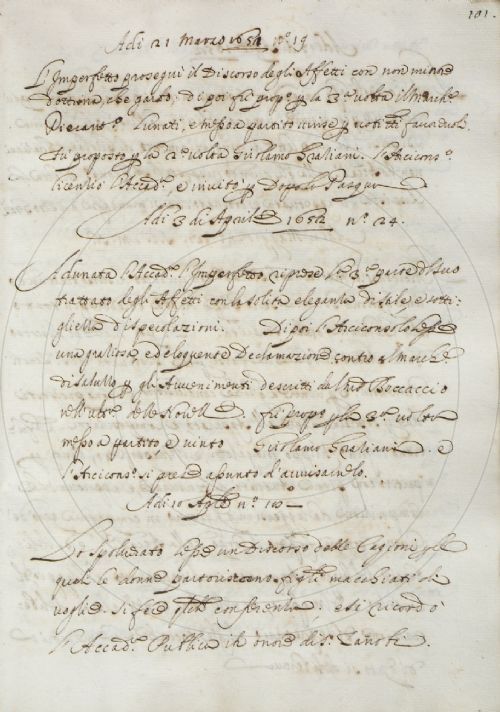 101.
Adi 21 Marzo 1654 n.º 19
L'Imperfetto proseguì il Discorso degli Affetti con non minor
dottrina, che gusto; di poi fù propº. p la 3.ª volta il March.
Riccardº. Lunati, e messo a partito vinse p voti favorevoli.
Fù proposto p la 2.ª volta Girolamo Graliani. L'Arcicons.º
licentiò l'Accad.ª e invitò p Dopo le Pasque
Adi 3 di Aprile 1654 n.º 24.
Adunata l'Accad.ª l'Imperfetto riprese la 3.ª parte del suo
trattato degli Affetti con la solita eleganza di sale, e sotti-
gliezza di specolazioni. Di poi l'Arciconsolo lesse
una gratiosa, ed eloquente Declamazione contro il March.
di Saluzzo p gli Avvenimenti descritti dal Boccaccio
nell' delle Novelle. fù propº p la 3.ª volta
messo a partito, e vinto Girolamo Graliani. e
l'Arcicons.º si prese assunto d'avvisarnelo.
Adi 10 Aple n.º
Lo Spolverato lesse un Discorso delle Cagioni p le
quali le donne partoriscono figli macchiati di
voglie. Si fece conferenza, e si ricordò
l'Accad.ª Publica in onore di S. Zanobi.